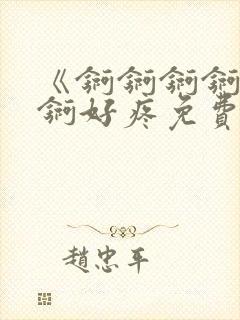 《锕锕锕锕
锕好疼免費
趙忠平